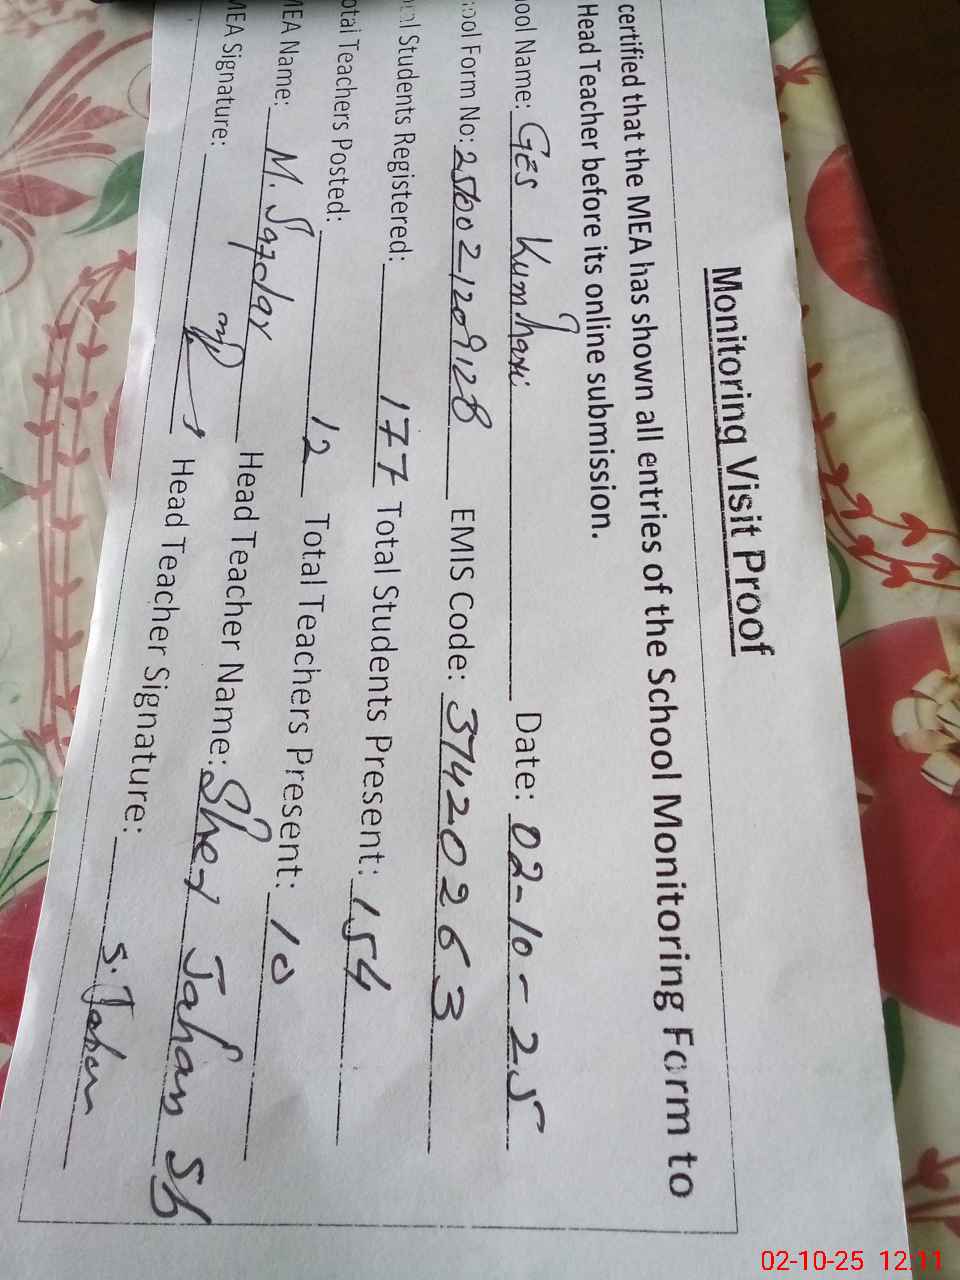 Monitoring Visit Proof
certified that the MEA has shown all entries of the School Monitoring Form to
Head Teacher before its online submission.
ool Name: GES Kumhari Date: 02-10-25
ool Form No: EMIS Code: 37420263
al Students Registered: 177 Total Students Present: 154
otal Teachers Posted: 12 Total Teachers Present: 10
MEA Name: M. Safdar Head Teacher Name: Sher Jahan Sb
MEA Signature: Head Teacher Signature: S. Jahan
02-10-25 12:11